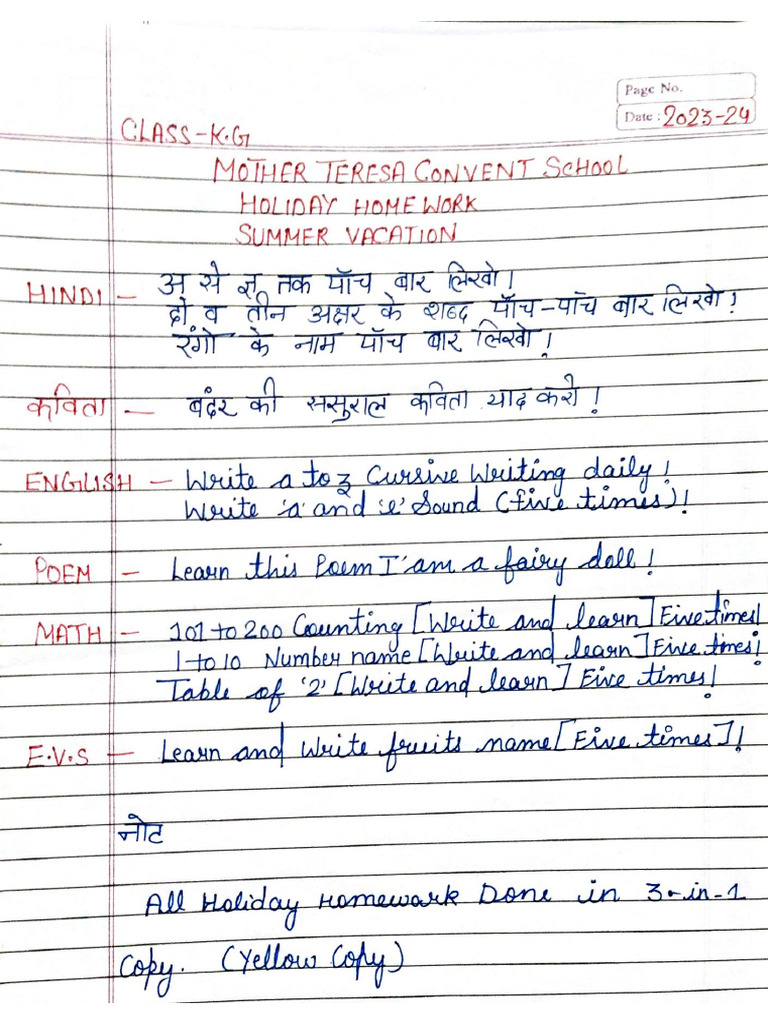 Page No.
Date : 2023-24
CLASS-K.G
MOTHER TERESA CONVENT SCHOOL
HOLIDAY HOMEWORK
SUMMER VACATION
HINDI - अ से ज्ञ तक पाँच बार लिखो।
दो व तीन अक्षर के शब्द पाँच-पाँच बार लिखो!
रंगो के नाम पाँच बार लिखो!
कविता - बंदर की ससुराल कविता याद करो!
ENGLISH - Write a to z Cursive Writing daily!
Write 'a' and 'e' Sound (five times)!
POEM - Learn this Poem I'am a fairy doll!
MATH - 101 to 200 Counting [Write and learn] Five times!
1 to 10 Number name [Write and learn] Five times!
Table of '2' [Write and learn] Five times!
E.V.S - Learn and Write fruits name [Five times]!
नोट
All Holiday Homework Done in 3-in-1
Copy. (Yellow Copy)